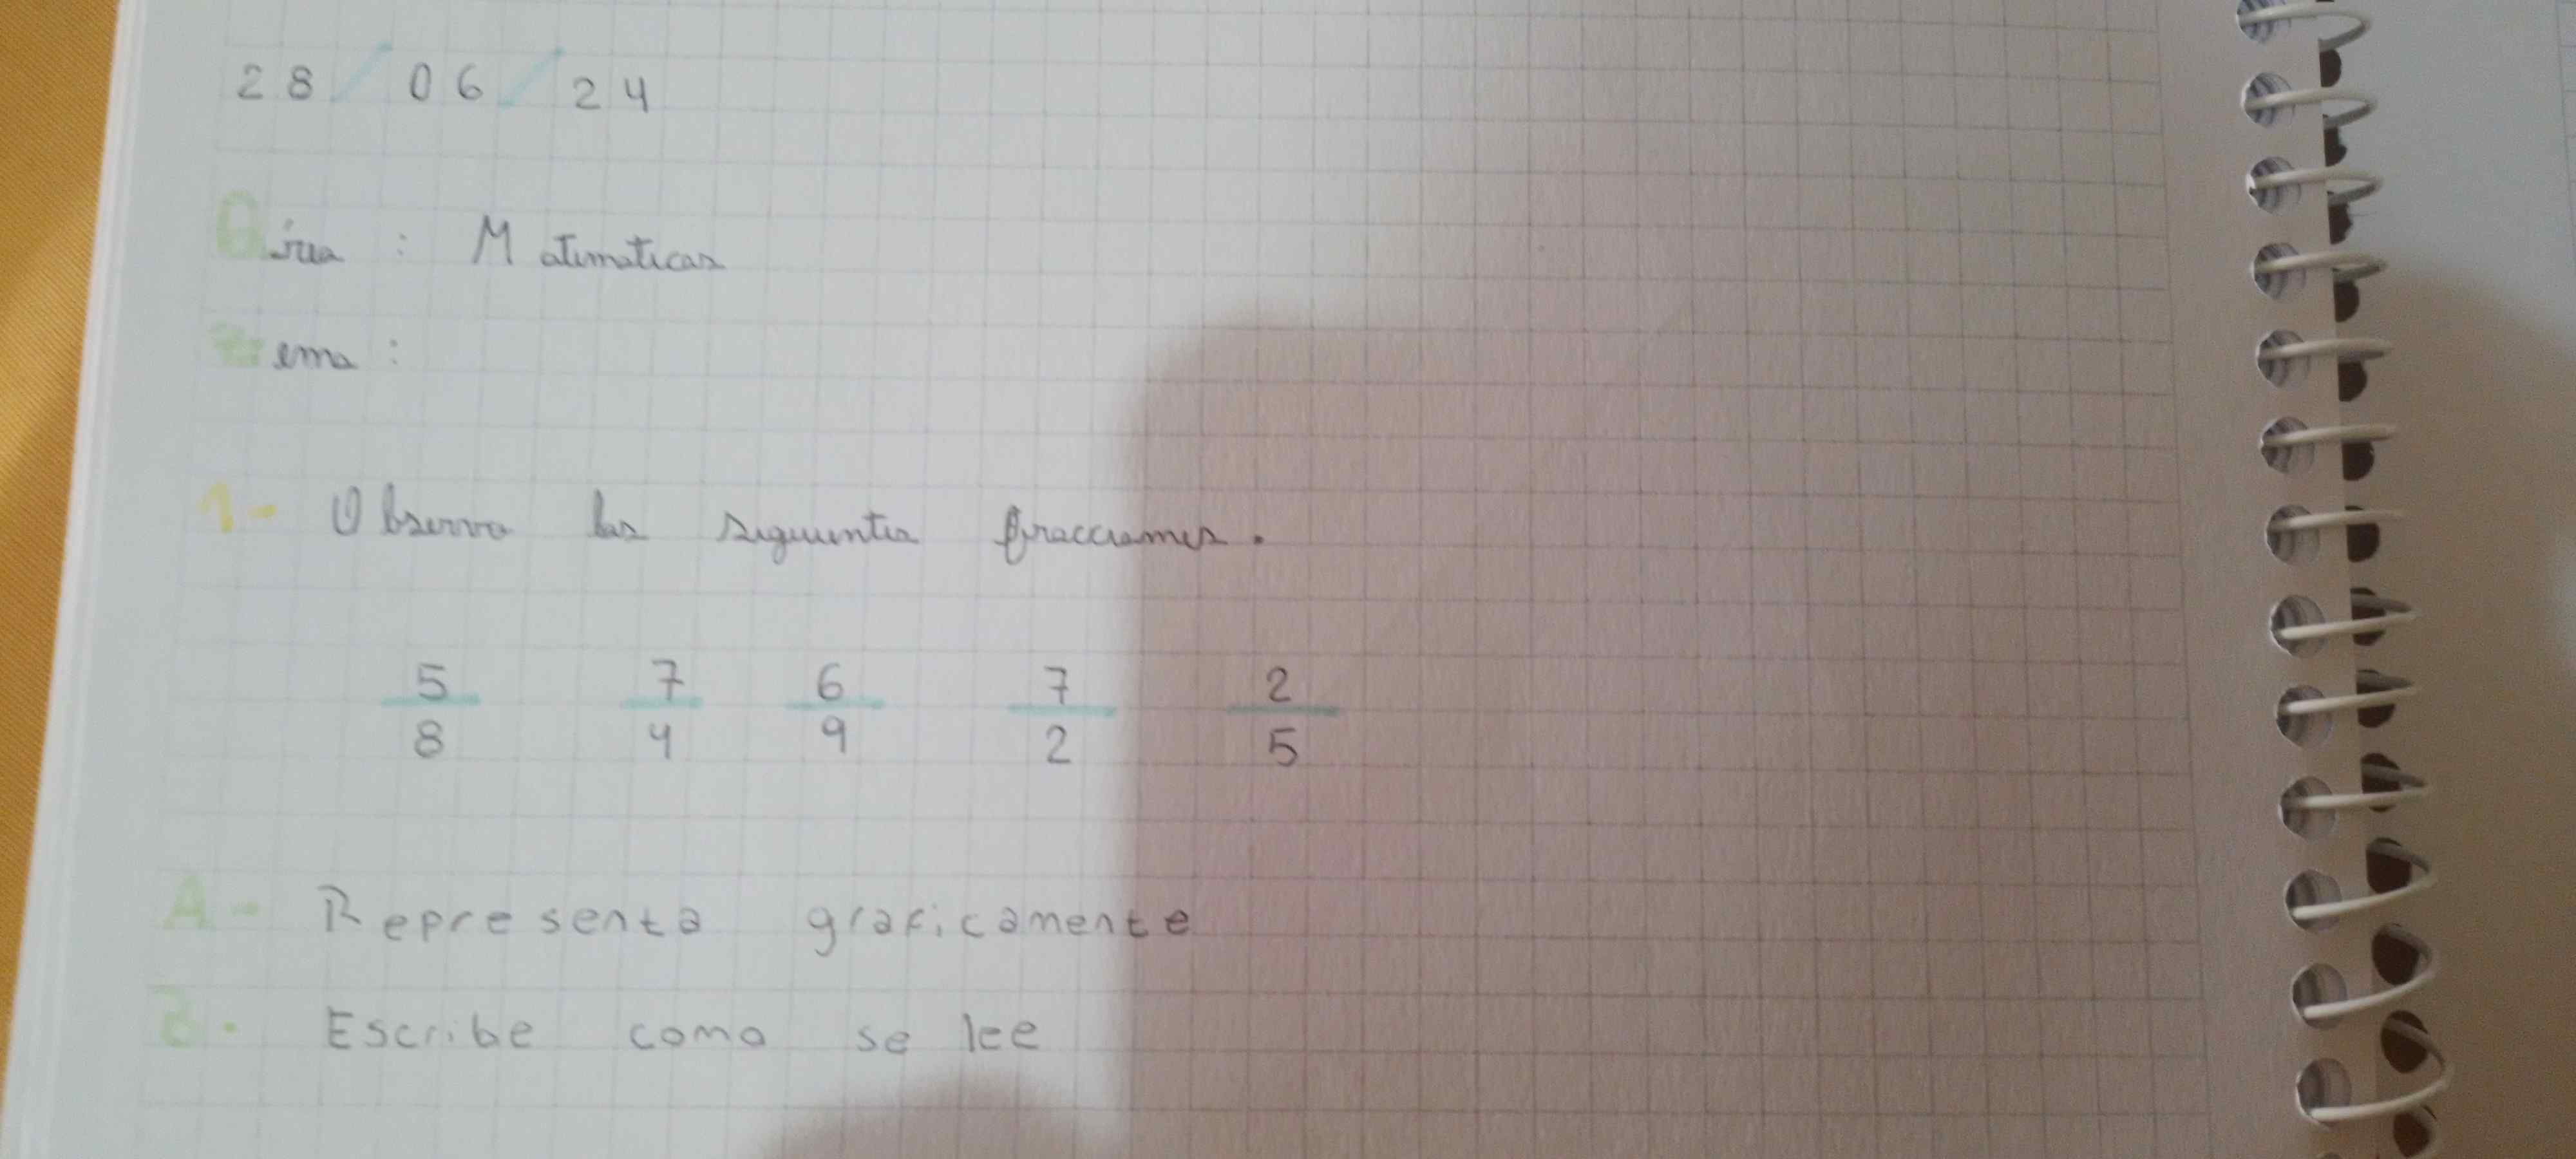 28/06/24
Área : Matematicas
tema :
1- Observa las siguientes fracciones.
5/8 7/4 6/9 7/2 2/5
A- Representa graficamente
B- Escribe como se lee